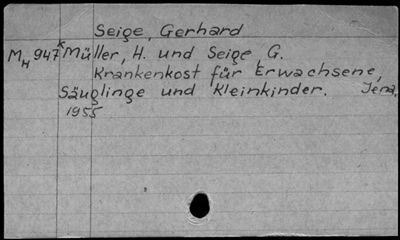 Seige, Gerhard
MH947K Müller, H. und Seige G.
Krankenkost für Erwachsene,
Säuglinge und Kleinkinder. Jena,
1955